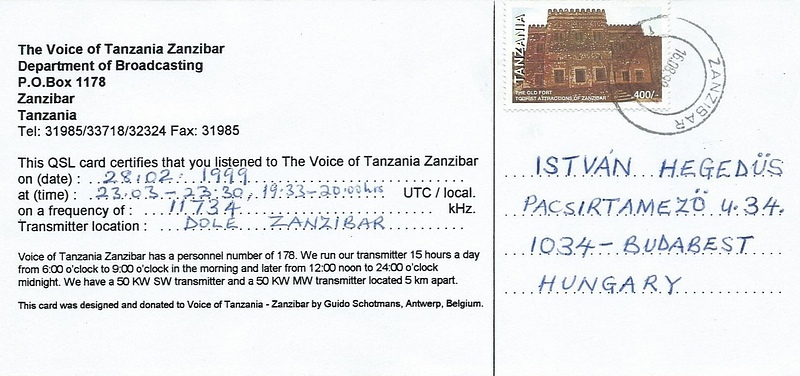 The Voice of Tanzania Zanzibar
Department of Broadcasting
P.O.Box 1178
Zanzibar
Tanzania
Tel: 31985/33718/32324 Fax: 31985
This QSL card certifies that you listened to The Voice of Tanzania Zanzibar
on (date) : 28:02: 1999
at (time) : 23.03-23:30, 19:33-20:00hrs UTC / local.
on a frequency of : 11734 kHz.
Transmitter location : DOLE ZANZIBAR
Voice of Tanzania Zanzibar has a personnel number of 178. We run our transmitter 15 hours a day
from 6:00 o'clock to 9:00 o'clock in the morning and later from 12:00 noon to 24:00 o'clock
midnight. We have a 50 KW SW transmitter and a 50 KW MW transmitter located 5 km apart.
This card was designed and donated to Voice of Tanzania - Zanzibar by Guido Schotmans, Antwerp, Belgium.
TANZANIA
THE OLD FORT
TOURIST ATTRACTIONS OF ZANZIBAR
400/-
ZANZIBAR
ISTVÁN HEGEDŰS
PACSIRTAMEZŐ U.34.
1034-BUDABEST
HUNGARY